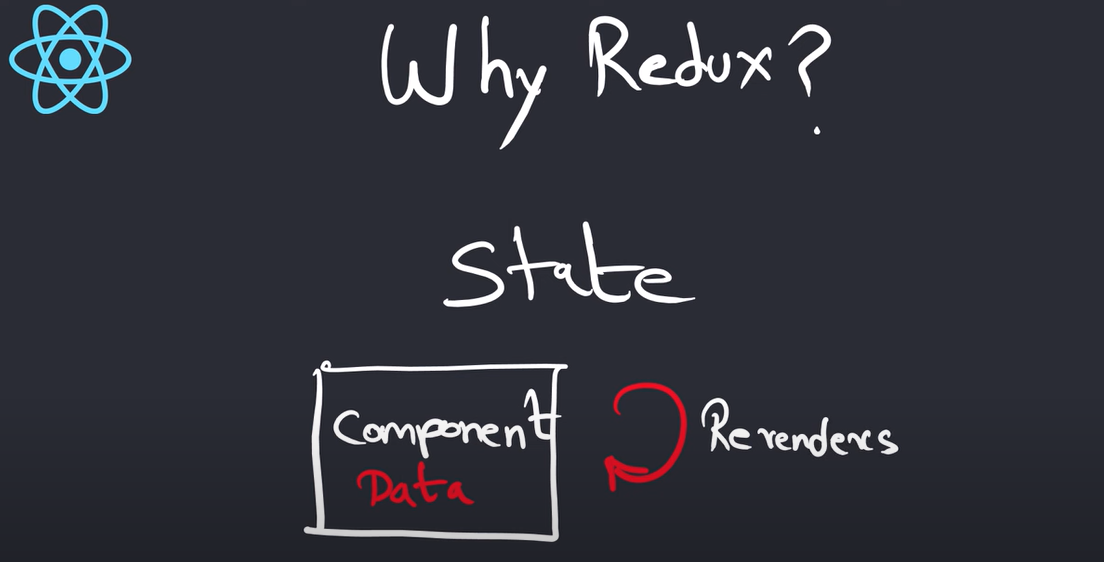 Why Redux?
State
Component
Data
Rerenders